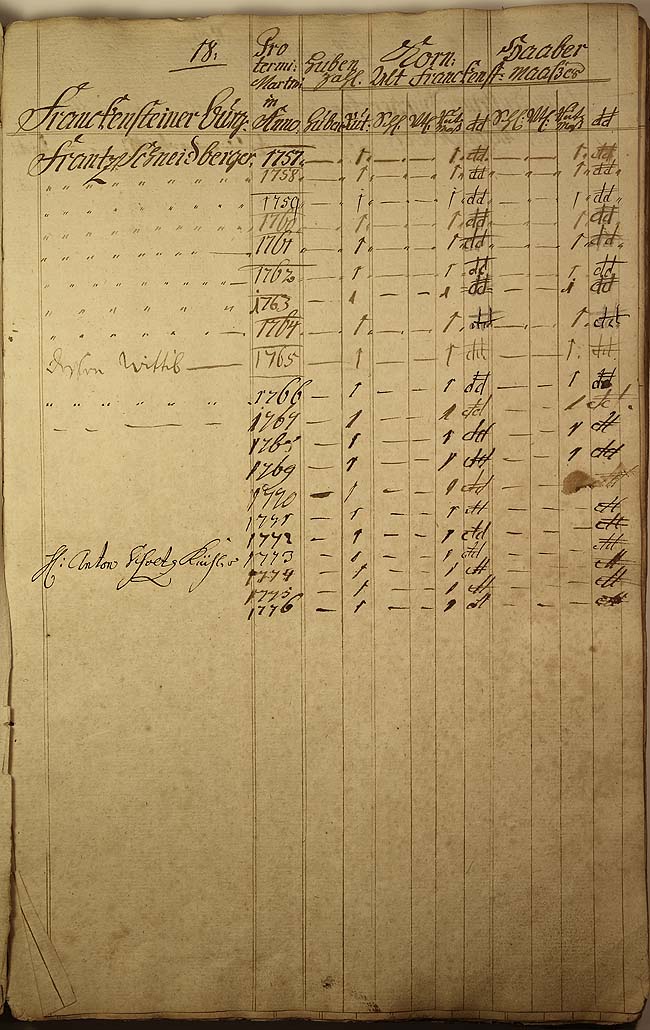 18. Pro Huben Korn: Haaber
termi: Zahl. Alt Franckenst: Maaßes
Martini
in
Franckensteiner Bürg: Anno Huben Rut. Schl. Vtl. dd Schl: Vtl. dd
Frantz Schneidberger 1757. — 1. — — 1 dd — — 1. dd
" " " " " " " " 1758. — 1. — — 1 dd — — 1. dd
" " " " " " " " 1759 — 1 — — 1 dd — — 1 dd
" " " " " " " " 1760 — 1. — — 1 dd — — 1 dd
" " " " " " " " 1761 — 1. — — 1 dd — — 1 dd
" " " " " " " " 1762 — 1 — — 1 dd — — 1 dd
" " " " " " " " 1763 — 1 — — 1 dd — — 1 dd
" " " " " " " " 1764 — 1. — — 1 dd — — 1. dd
Dessen Wittib — 1765 — 1. — — 1 dd — — 1. dd
" " " " " " 1766 — 1 — — 1 dd — — 1 dd
" " — — — 1767 — 1 — — 1 dd — — 1 dd
1768 — 1 — — 1 dd — — 1 dd
1769 — 1 — — 1 dd — — 1 dd
1770 — 1 — — 1 dd — — dd
1771 — 1 — — 1 dd — — dd
1772 — 1 — — 1 dd — — dd
H: Anton 1773 — 1 — — 1 dd — — dd
1774 — 1 — — 1 dd — — dd
1775 — 1 — — 1 dd — — dd
1776 — 1 — — 1 dd — — dd